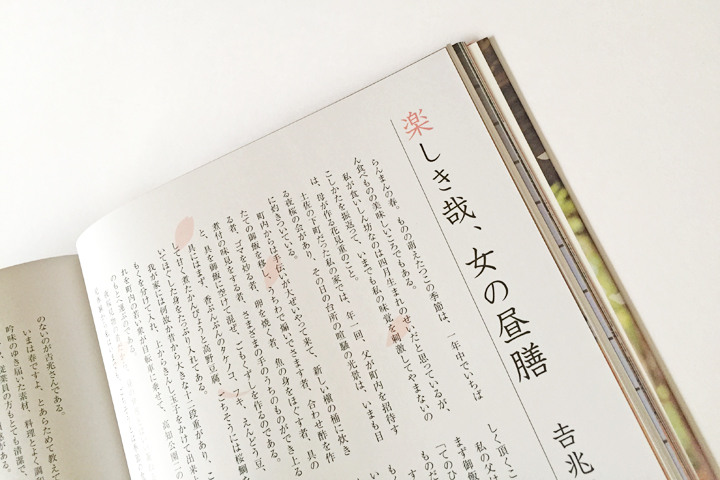 楽しき哉、女の昼膳
吉兆
らんまんの春。ものの萌えたつこの季節は、一年中でいちば
ん食べものの美味しいころでもある。
私が食いしん坊なのは四月生まれのせいだと思っているが、
こしかたを振返って、いまでも私の味覚を刺激してやまないの
は、母が作る花見重のこと。
土佐の下町だった私の家では、年一回、父が町内を招待す
る夜桜の会があり、その日の台所の喧騒の光景は、いまも目
に灼きついている。
町内からは手伝いが大ぜいやって来て、新しい檜の桶に炊き
たての御飯を移し、うちわで煽いでさます者、合わせ酢を作
る者、ゴマを炒る者、卵を焼く者、魚の身をほぐす者、具の
煮付の味見をする者、さまざまの手のうちものができ上る
と、具を御飯に空けて混ぜ、ごもくずしを作るのである。
具にはまず、香ぷんぷんのタケノコ、
して甘く煮たかんぴょうと高野豆腐、
いてほぐした身をたっぷり入れてある。
我が家には何故か昔から大きな十二段重があり、こ
もくを分けて入れ、上からきんし玉子をかけて出来上
れを町内の若い衆が自転車に乗せて、高知公園
のもとへ運
しく頂くこ
私の父は
まず御飯
「てのひ
ものだ
もく
のないのが吉兆さんである。
いまは春ですよ、とあらためて教えて
吟味のゆき届いた素材、料理とよく調和
従業員の方もとても清潔で、